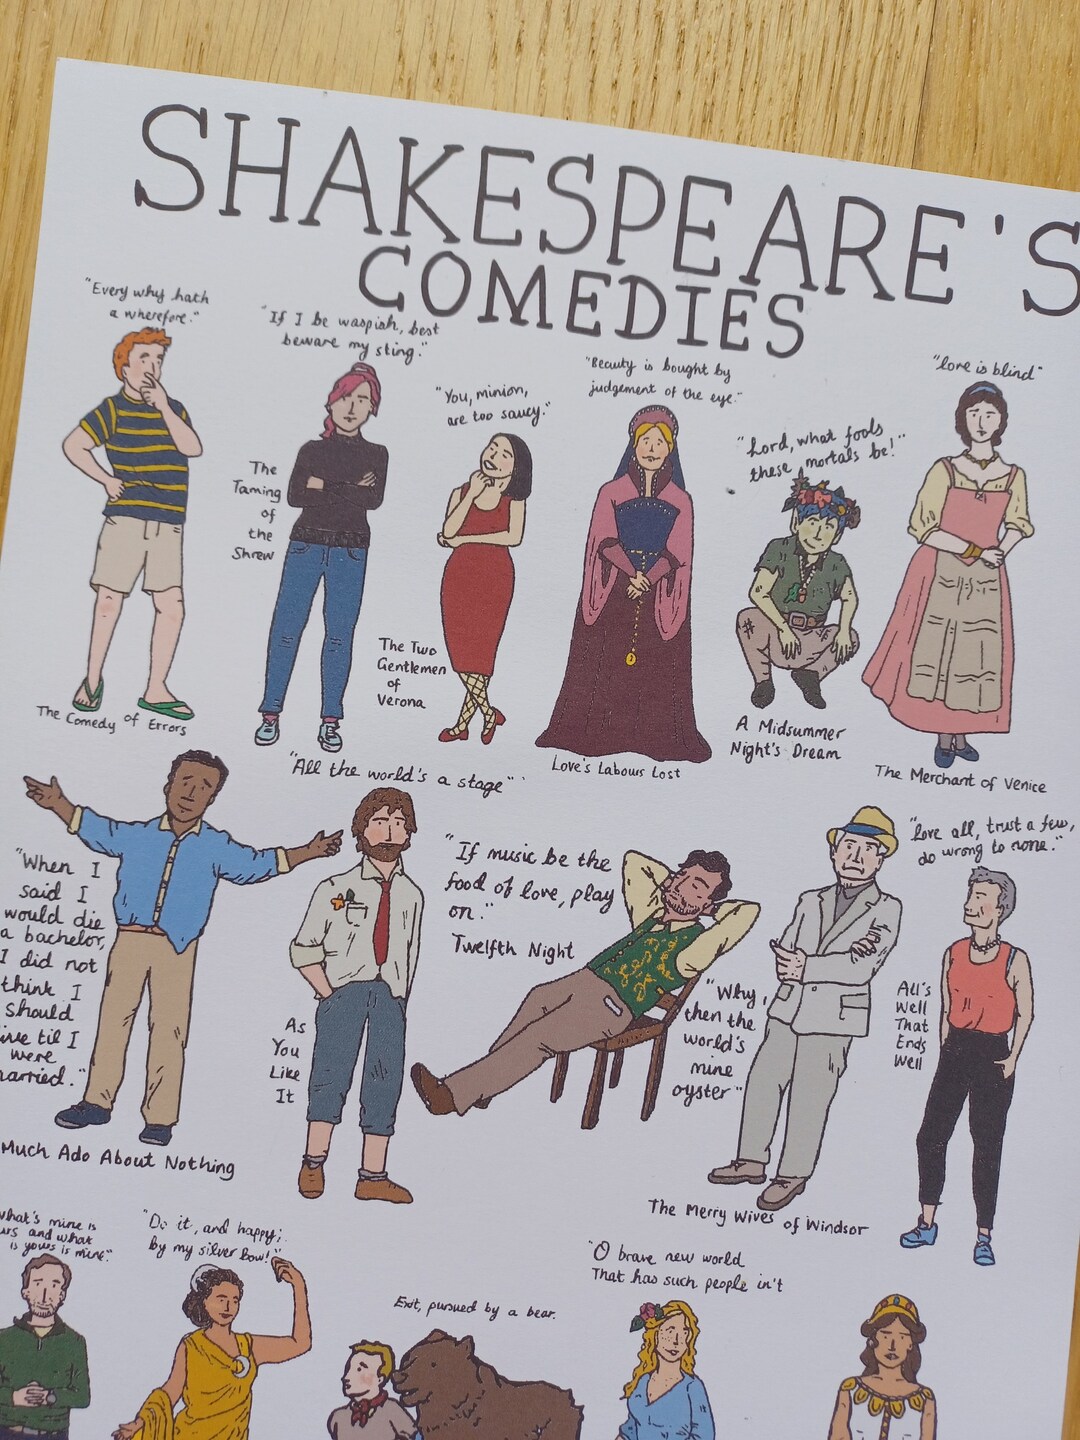 SHAKESPEARE'S
COMEDIES
"Every why hath
a wherefore."
The Comedy of Errors
"If I be waspish, best
beware my sting."
The
Taming
of
the
Shrew
"You, minion,
are too saucy."
The Two
Gentlemen
of
Verona
"Beauty is bought by
judgement of the eye."
Love's Labours Lost
"Lord, what fools
these mortals be!"
A Midsummer
Night's Dream
"love is blind"
The Merchant of Venice
"When I
said I
would die
a bachelor,
I did not
think I
should
live til I
were
married."
Much Ado About Nothing
"All the world's a stage"
As
You
Like
It
"If music be the
food of love, play
on."
Twelfth Night
"Why,
then the
world's
mine
oyster"
The Merry Wives of Windsor
"love all, trust a few,
do wrong to none."
All's
Well
That
Ends
Well
what's mine is
and what
is yours is mine."
"Do it, and happy;
by my silver bow!"
Exit, pursued by a bear.
"O brave new world
That has such people in't